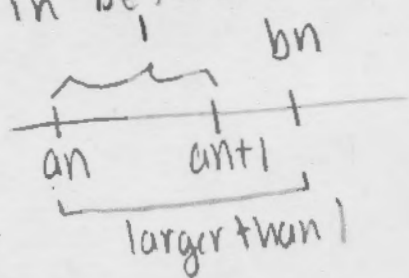 in be
1
bn
an
an+1
larger than 1